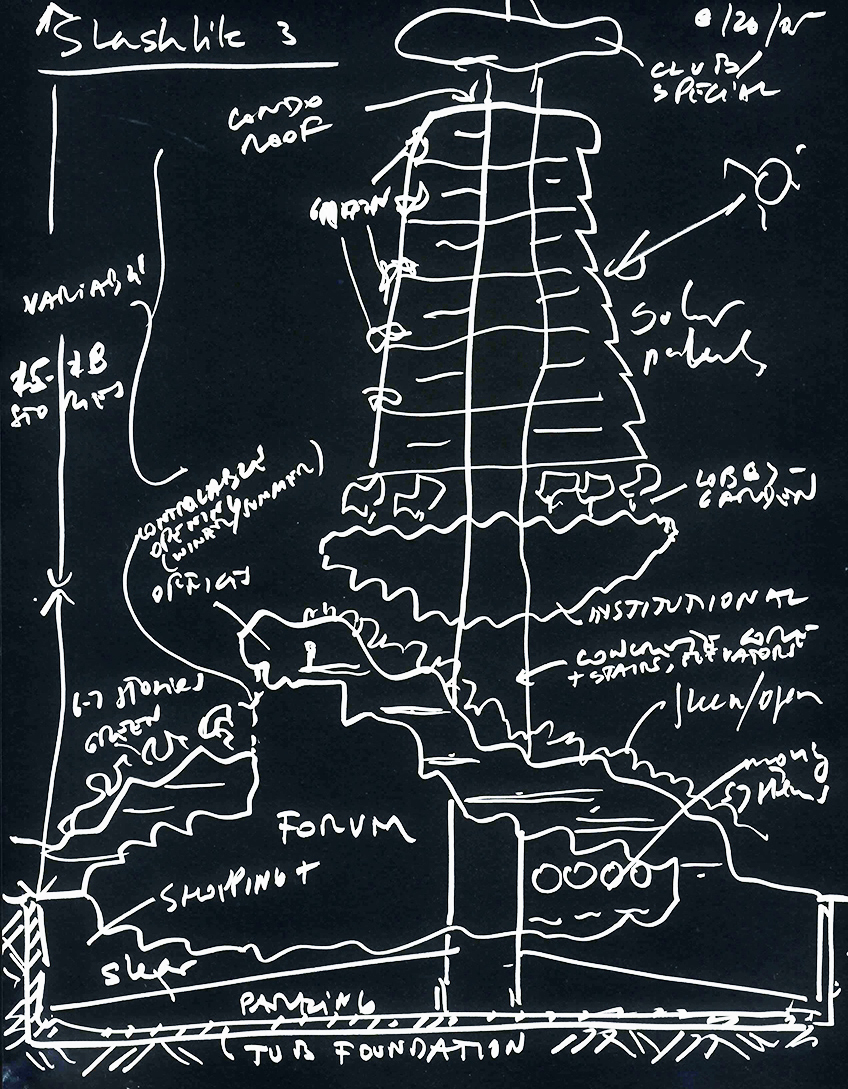 Slashlik 3
CLUB/
SPECIAL
CONDO
ROOF
GARDEN
VARIABLE
Solar
panels
25-28
STORIES
CONTROLABLE
OPENING
(WINTER/SUMMER)
LOBBY
GARDEN
OFFICES
INSTITUTIONAL
CONCRETE CORE
+ STAIRS, ELEVATORS
6-7 STORIES
GREEN
green/open
SYSTEMS
FORUM
SHOPPING +
PARKING
TUB FOUNDATION